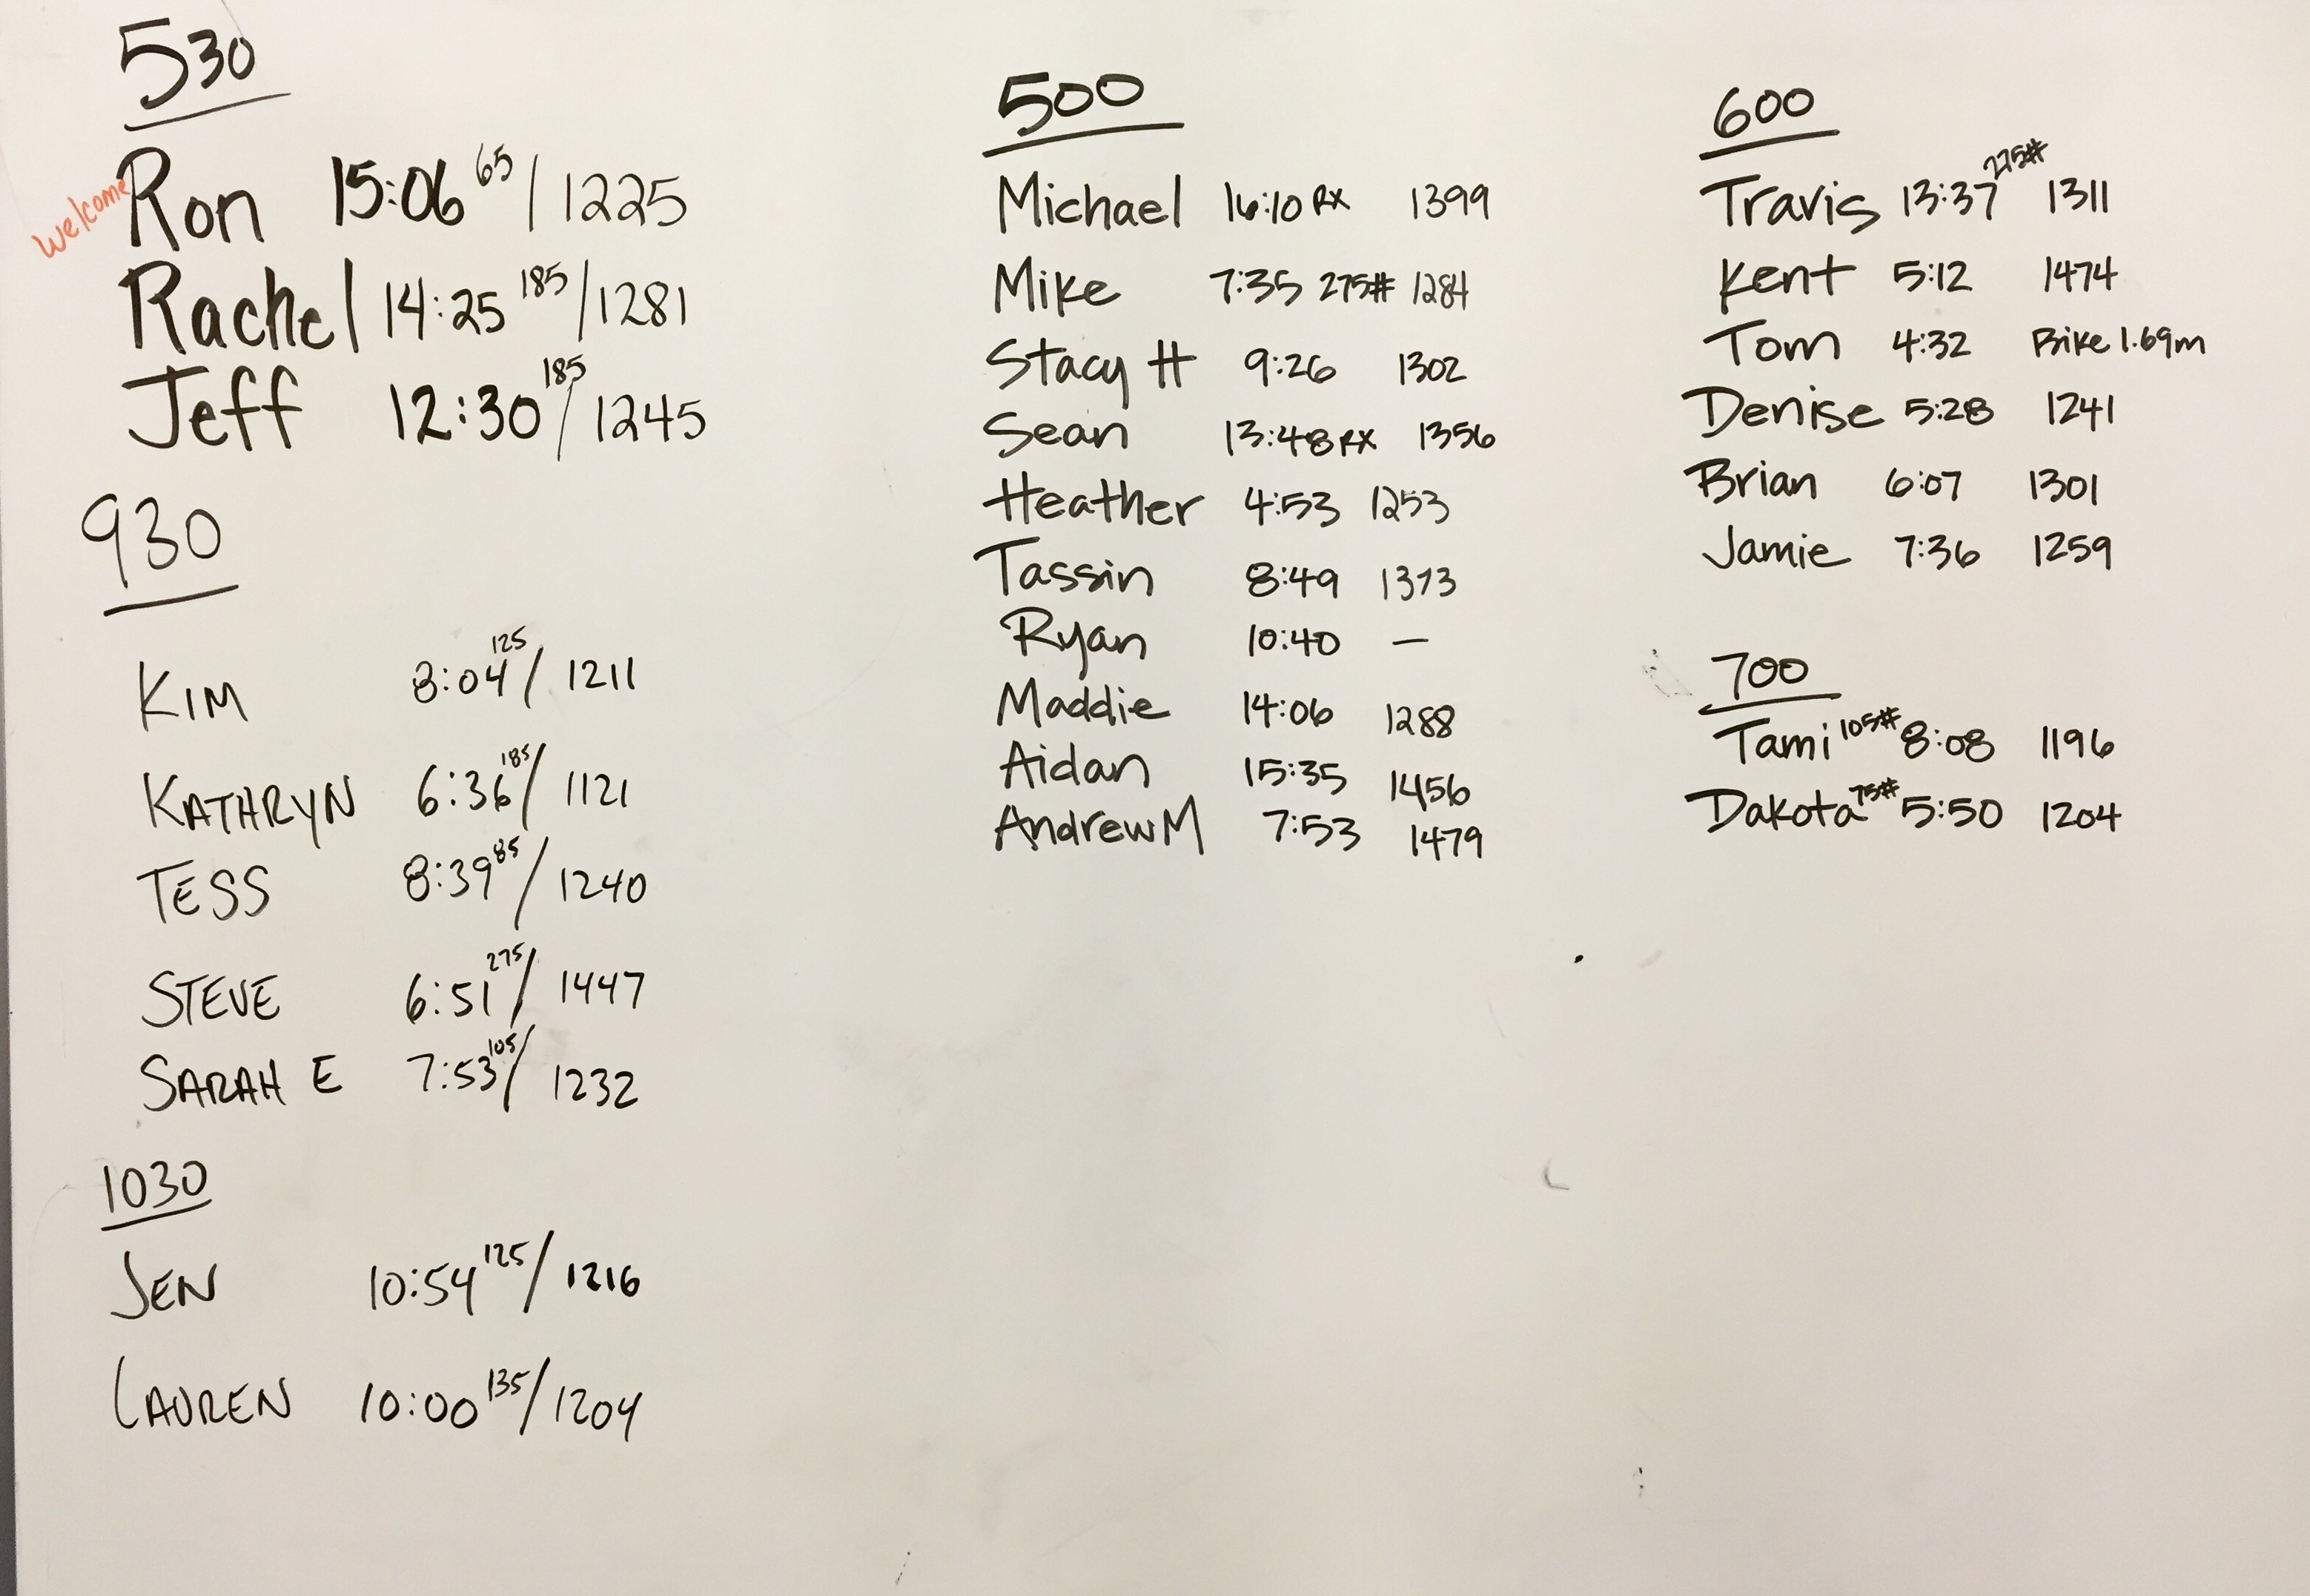 530
welcome Ron 15:06 65 / 1225
Rachel 14:25 185 / 1281
Jeff 12:30 185 / 1245
930
KIM 8:04 125 / 1211
KATHRYN 6:36 185 / 1121
TESS 8:39 85 / 1240
STEVE 6:51 275 / 1447
SARAH E 7:53 105 / 1232
1030
JEN 10:54 125 / 1216
LAUREN 10:00 135 / 1204
500
Michael 16:10 RX 1399
Mike 7:35 275# 1284
Stacy H 9:26 1302
Sean 13:48 RX 1356
Heather 4:53 1253
Tassin 8:49 1373
Ryan 10:40 —
Maddie 14:06 1288
Aidan 15:35 1456
Andrew M 7:53 1479
600
Travis 13:37 225# 1311
Kent 5:12 1474
Tom 4:32 Bike 1.69m
Denise 5:28 1241
Brian 6:07 1301
Jamie 7:36 1259
700
Tami 105# 8:08 1196
Dakota 75# 5:50 1204